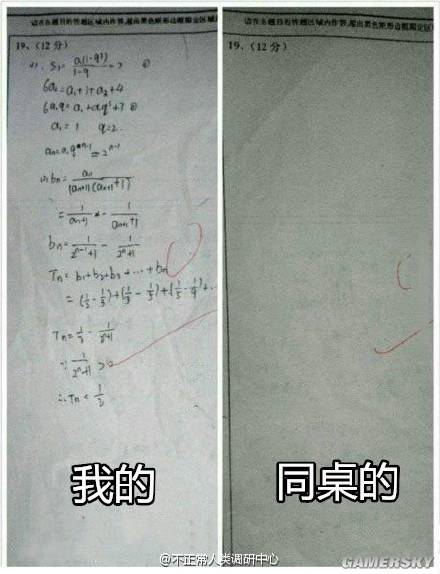 请在各题目的答题区域内作答，超出黑色矩形边框限定区域
19、(12分)
S₃ = a₁(1-q³)/1-q = 7 ①
6a₂ = a₁+3+a₃+4
6a₁q = a₁+a₁q²+7 ②
a₁ = 1 q=2
aₙ=a₁qⁿ⁻¹=2ⁿ⁻¹
bₙ = aₙ/(aₙ+1)(aₙ₊₁+1)
= 1/aₙ+1 - 1/aₙ₊₁+1
bₙ = 1/2ⁿ⁻¹+1 - 1/2ⁿ+1
Tₙ = b₁+b₂+b₃+…+bₙ
= (1/2-1/3)+(1/3-1/5)+(1/5-1/9)+…
Tₙ = 1/2 - 1/2ⁿ+1
∵ 1/2ⁿ+1 > 0
∴ Tₙ < 1/2
我的
请在各题目的答题区域内作答，超出黑色矩形边框限定区
19、(12分)
同桌的
@不正常人类调研中心
GAMERSKY